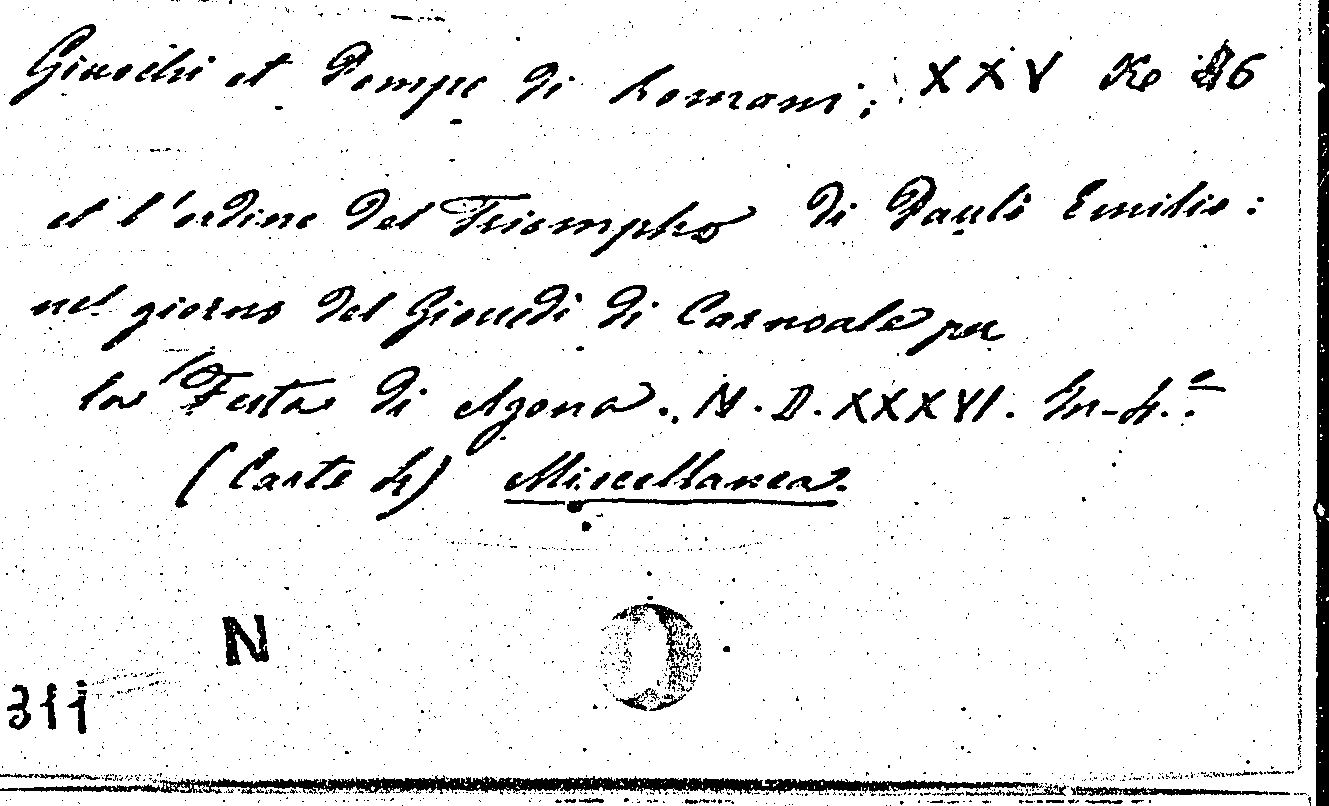 Giuochi et Pompe di Romani; XXV Ke 26
et l'ordine del Triompho di Paulo Emilio:
nel giorno del Giouedi di Carnoale per
la Festa di Agona. M. D. XXXVI. In-4.°
(Carte 4) Miscellanea.
N
311